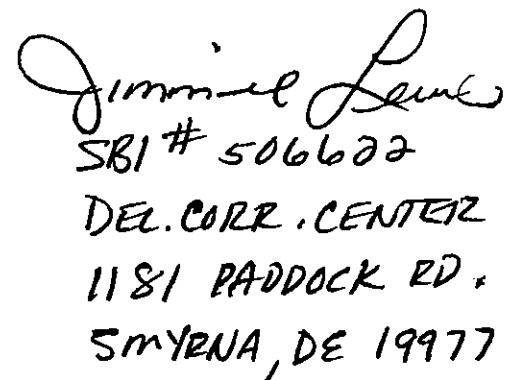 Jimmie Lewis
SBI # 506622
DEL. CORR. CENTER
1181 PADDOCK RD.
SMYRNA, DE 19977